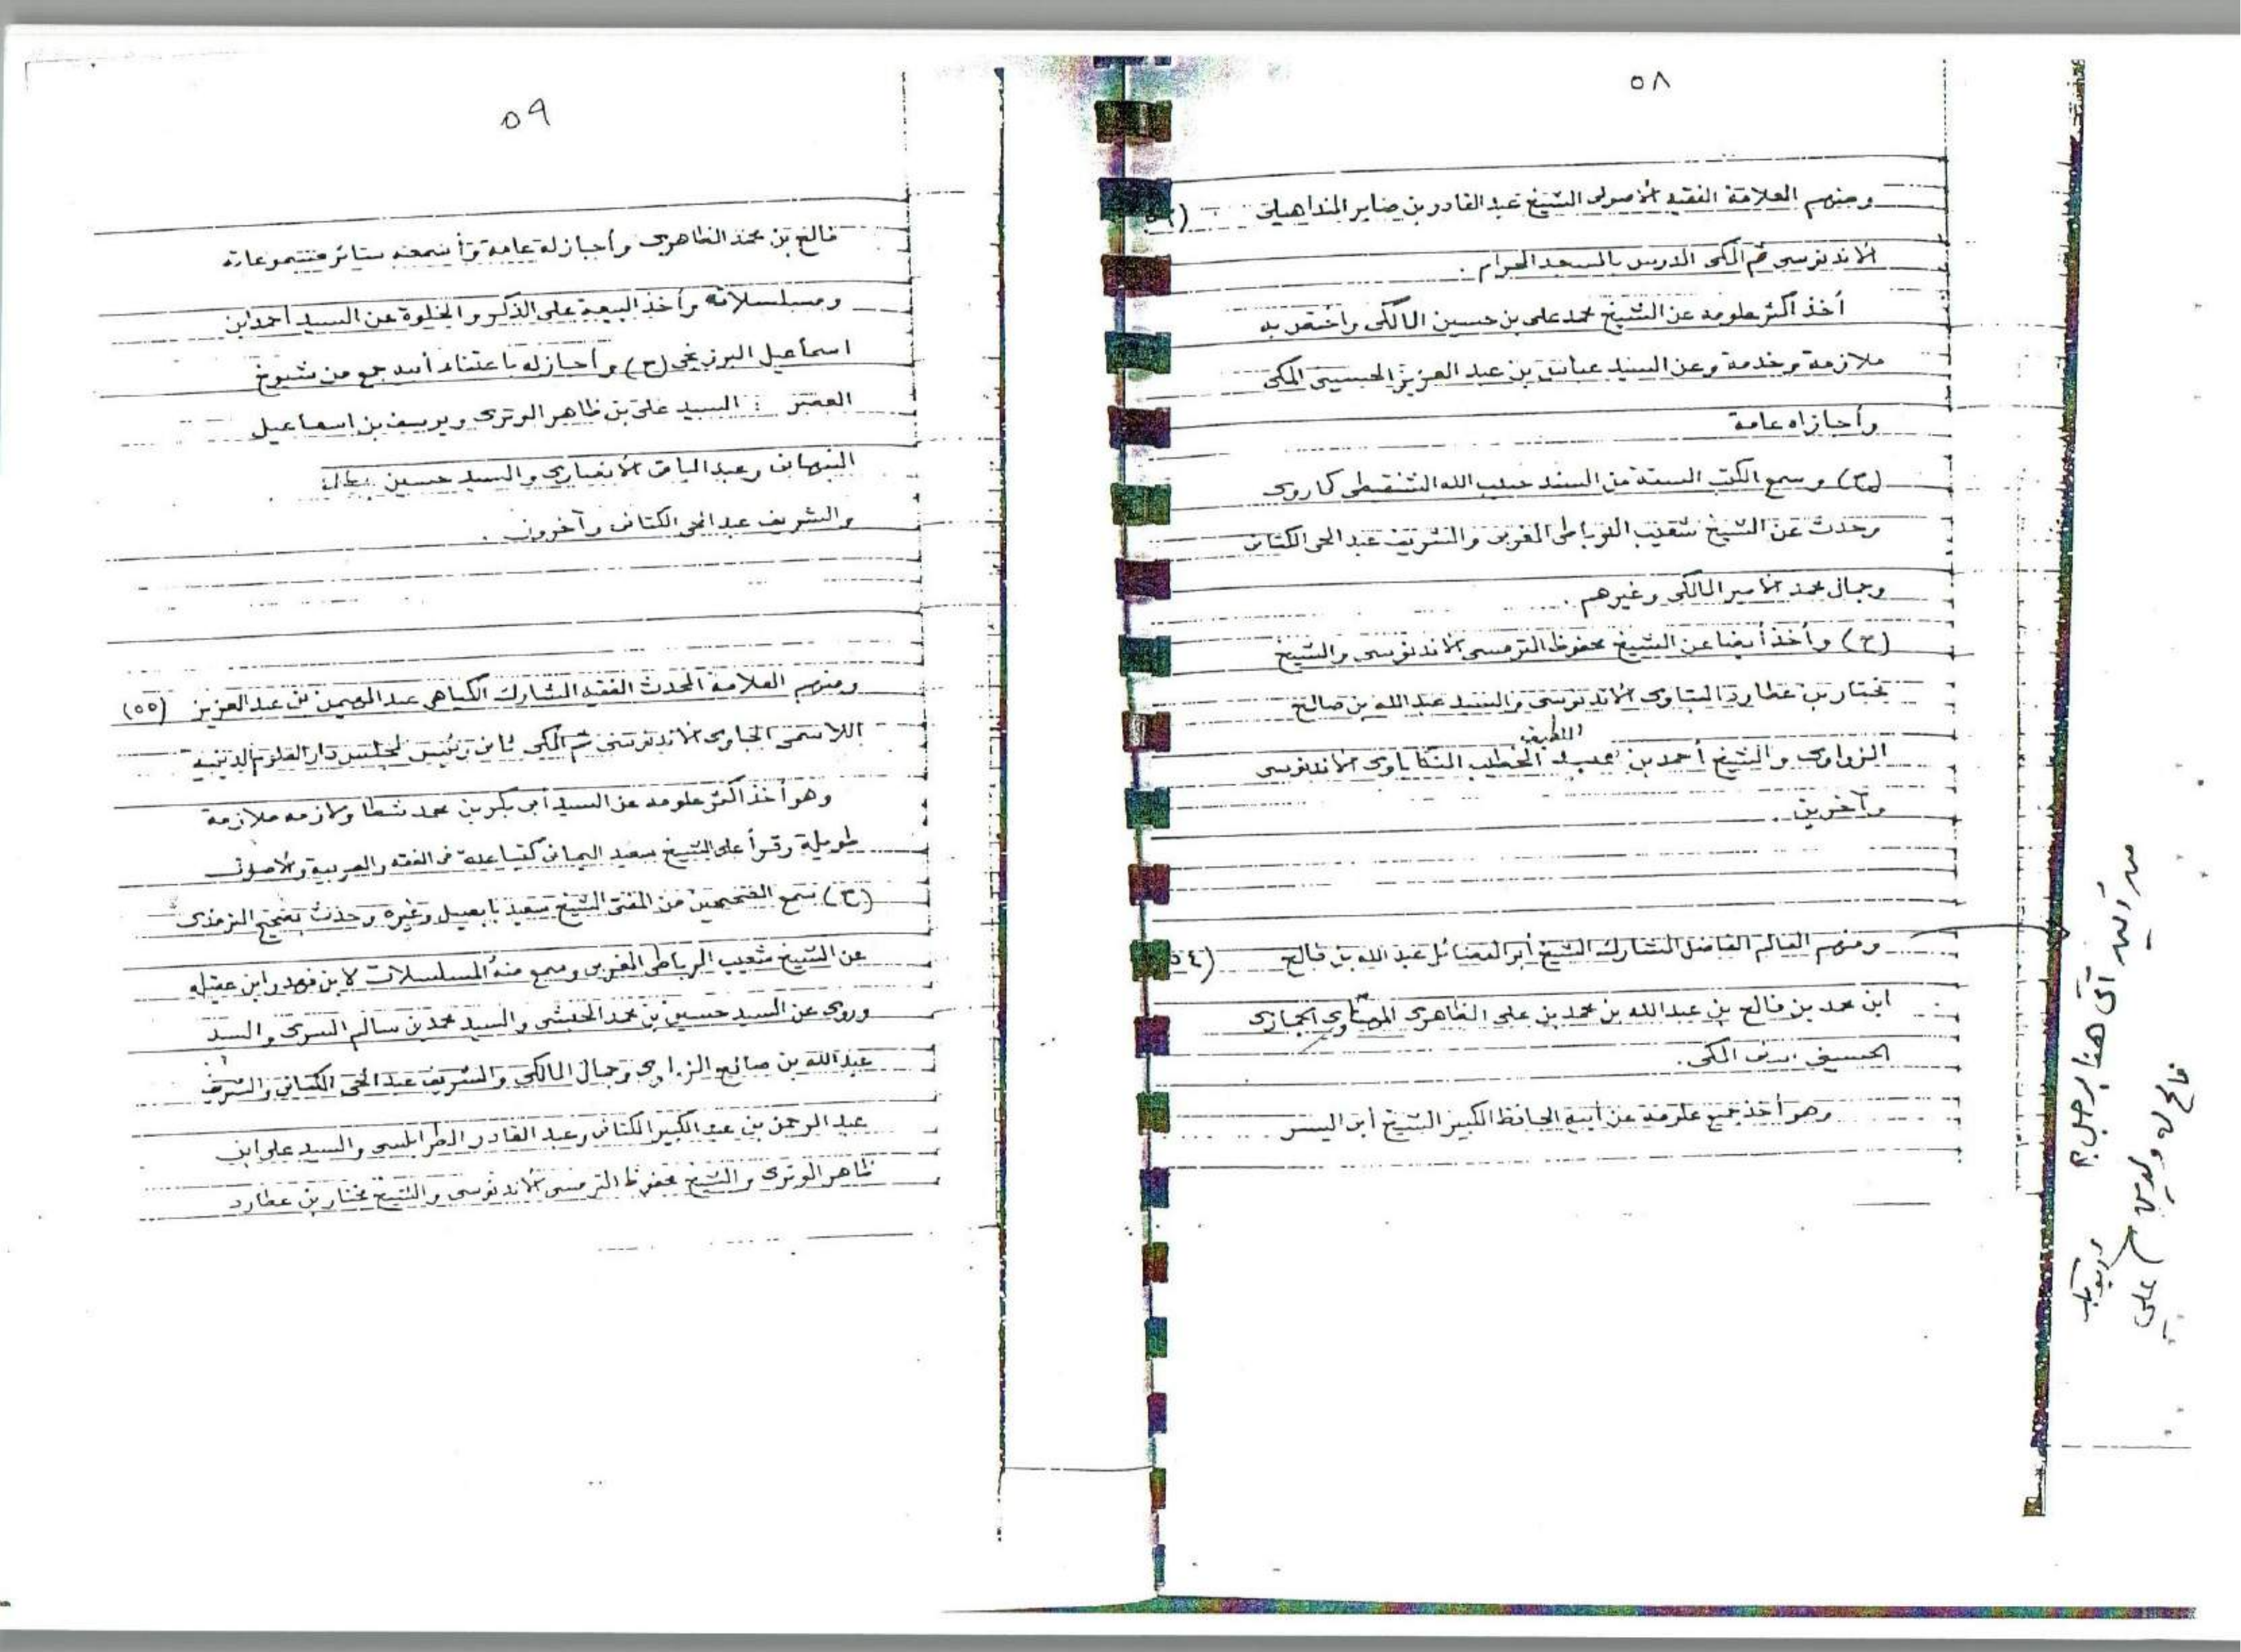 ٥٨
ومنهم العلامة الفقيه الأصولى الشيخ عبد القادر بن صابر المنداهيلى
الاندنوسى ثم المكى المدرس بالمسجد الحرام .
أخذ أكثر علومه عن الشيخ محمد على بن حسين المالكى واختص به
ملازمة وخدمة وعن السيد عباس بن عبد العزيز الحسينى المكى
وأجازاه عامة
(ح) وسمع الكتب الستة من السند حبيب الله الشنقيطى كما روى
وحدث عن الشيخ شعيب المغربى والشريف عبد الحى الكتانى
وجمال محمد الأمير المالكى وغيرهم .
(ح) وأخذ أيضا عن الشيخ محفوظ الترمسى الاندنوسى والشيخ
مختار بن عطارد البتاوى الأندنوسى والسيد عبد الله بن صالح
اللطيف
الزواوى والشيخ أحمد بن الخطيب الاندنوسى
وآخرين .
ومنهم العالم الفاضل المشارك الشيخ أبو الفضائل عبد الله بن فالح (٥٤)
ابن محمد بن فالح بن عبد الله بن محمد بن على الظاهرى الحجازى
المكى .
وهو أخذ جميع علومه عن أبيه الحافظ الكبير الشيخ أبى اليسر
هنا
فالح له
علي
٥٩
فالح بن محمد الظاهرى وأجاز له عامة سائر
ومسلسلاته وأخذ البيعة على الذكر والخلوة عن السيد أحمد ابن
اسماعيل البرزنجى (ح) وأجاز له باعتناء أبيه جمع من شيوخ
العصر : السيد على بن ظاهر الوترى ويوسف بن اسماعيل
النبهانى وعبد الباقى الأنصارى والسيد حسين
والشريف عبد الحى الكتانى وآخرون .
ومنهم العلامة المحدث الفقيه المشارك الكياهى عبد المهيمن بن عبد العزيز (٥٥)
اللاسمى الجاوى الاندنوسى ثم المكى ثانى رئيس لمجلس دار العلوم الدينية
وهو أخذ أكثر علومه عن السيد أبى بكر بن محمد شطا ولازمه ملازمة
طويلة وقرأ على الشيخ سعيد اليمانى كتبا عدة فى الفقه والعربية والأصول
(ح) سمع الصحيحين من المفتى الشيخ سعيد بابصيل وغيره وحدث الترمذى
عن الشيخ شعيب الرباطى المغربى وسمع منه المسلسلات لابن فهد وابن عقيله
وروى عن السيد حسين بن محمد الحبشى والسيد محمد بن سالم السرى والسيد
عبد الله بن صالح الزواوى وجمال المالكى والشريف عبد الحى الكتانى والشريف
عبد الرحمن بن عبد الكبير الكتانى وعبد القادر الطرابلسى والسيد على ابن
ظاهر الوترى والشيخ محفوظ الترمسى الأندنوسى والشيخ مختار بن عطارد